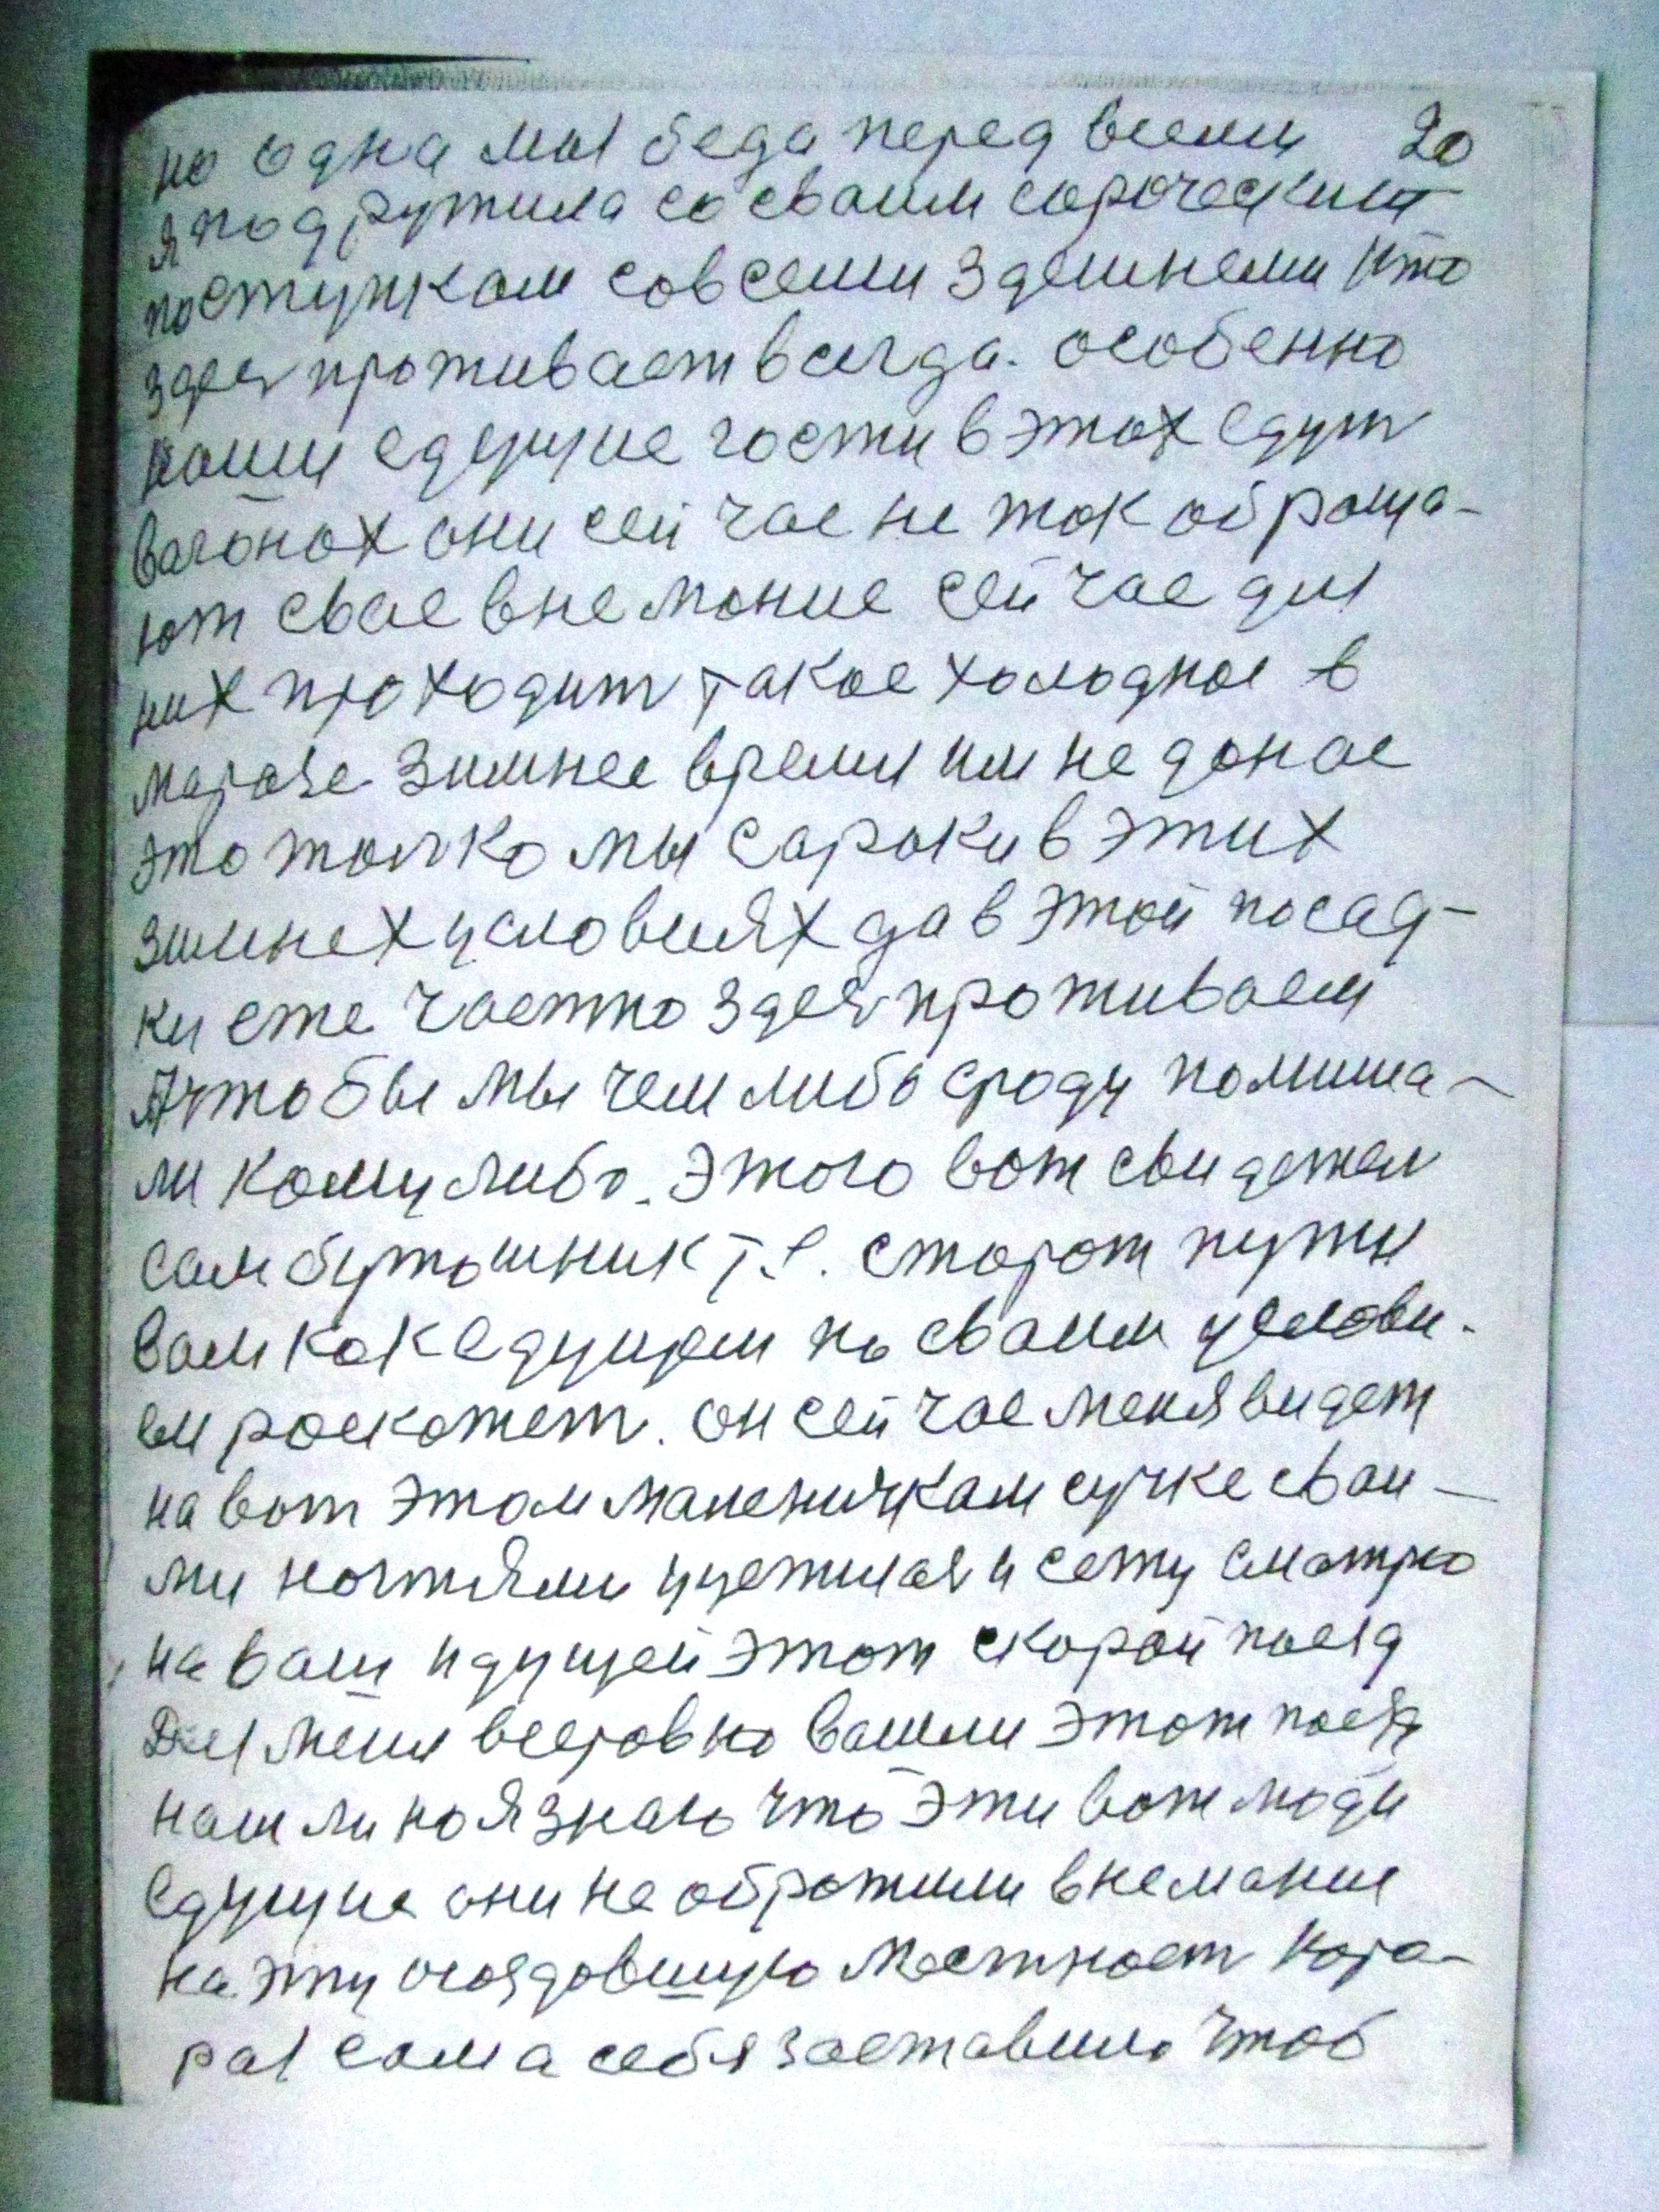 но одна моя беда перед всеми 20
я подружила со своим сороческим
поступкам со всеми здешнеми кто
здесь проживает всегда. особенно
наши едущие гости в этах едут
вагонах они сейчас не так обраща-
ют свае внемание сейчас для
них проходит такое холодное в
марозе зимнее время им не да нас
это толко мы сароки в этих
зимнех условиях да в этой посад-
ки сте частно здесь проживаем
А чтобы мы чем либо сроду помиша-
ли кому либо. Этого вот свидетел
сам бутошник т.е. сторож путя
вам как едущем по своим услови-
ем роскажет. он сейчас меня видет
на вот этом маленичкам сучке свои-
ми ногтями уцепилась и сежу сматрю
на ваш идущей этот скорай поезд
Для меня всеровно ваш ли этот поезд
наш ли но я знаю что эти вот люди
едущие они не обротили внемание
на эту опоздовшую мастност кото-
рая сама себя заставила чтоб